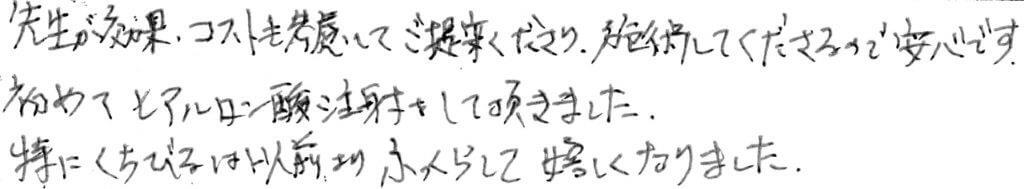 先生が効果、コストを考慮してご提案くださり、施術してくださるので安心です。
初めてヒアルロン酸注射をして頂きました。
特にくちびるは以前よりふっくらして嬉しくなりました。